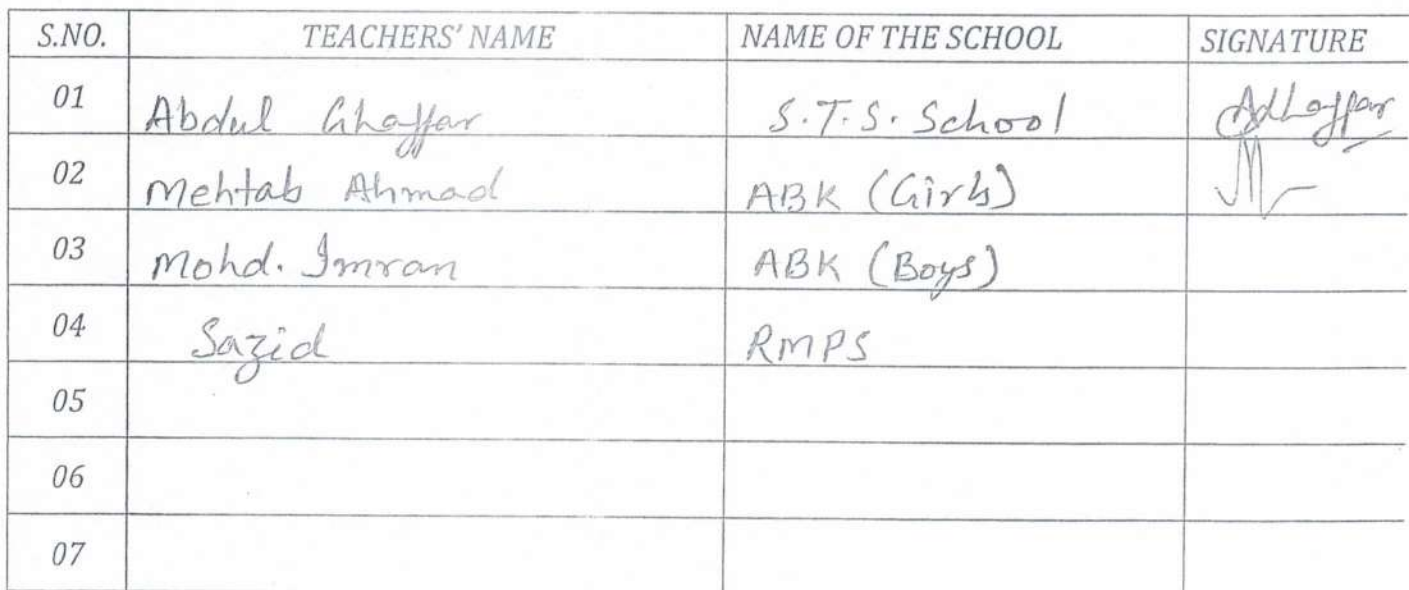 S.NO. TEACHERS' NAME NAME OF THE SCHOOL SIGNATURE
01 Abdul Ghaffar S.T.S. School
02 Mehtab Ahmad ABK (Girls)
03 Mohd. Imran ABK (Boys)
04 Sazid RMPS
05
06
07